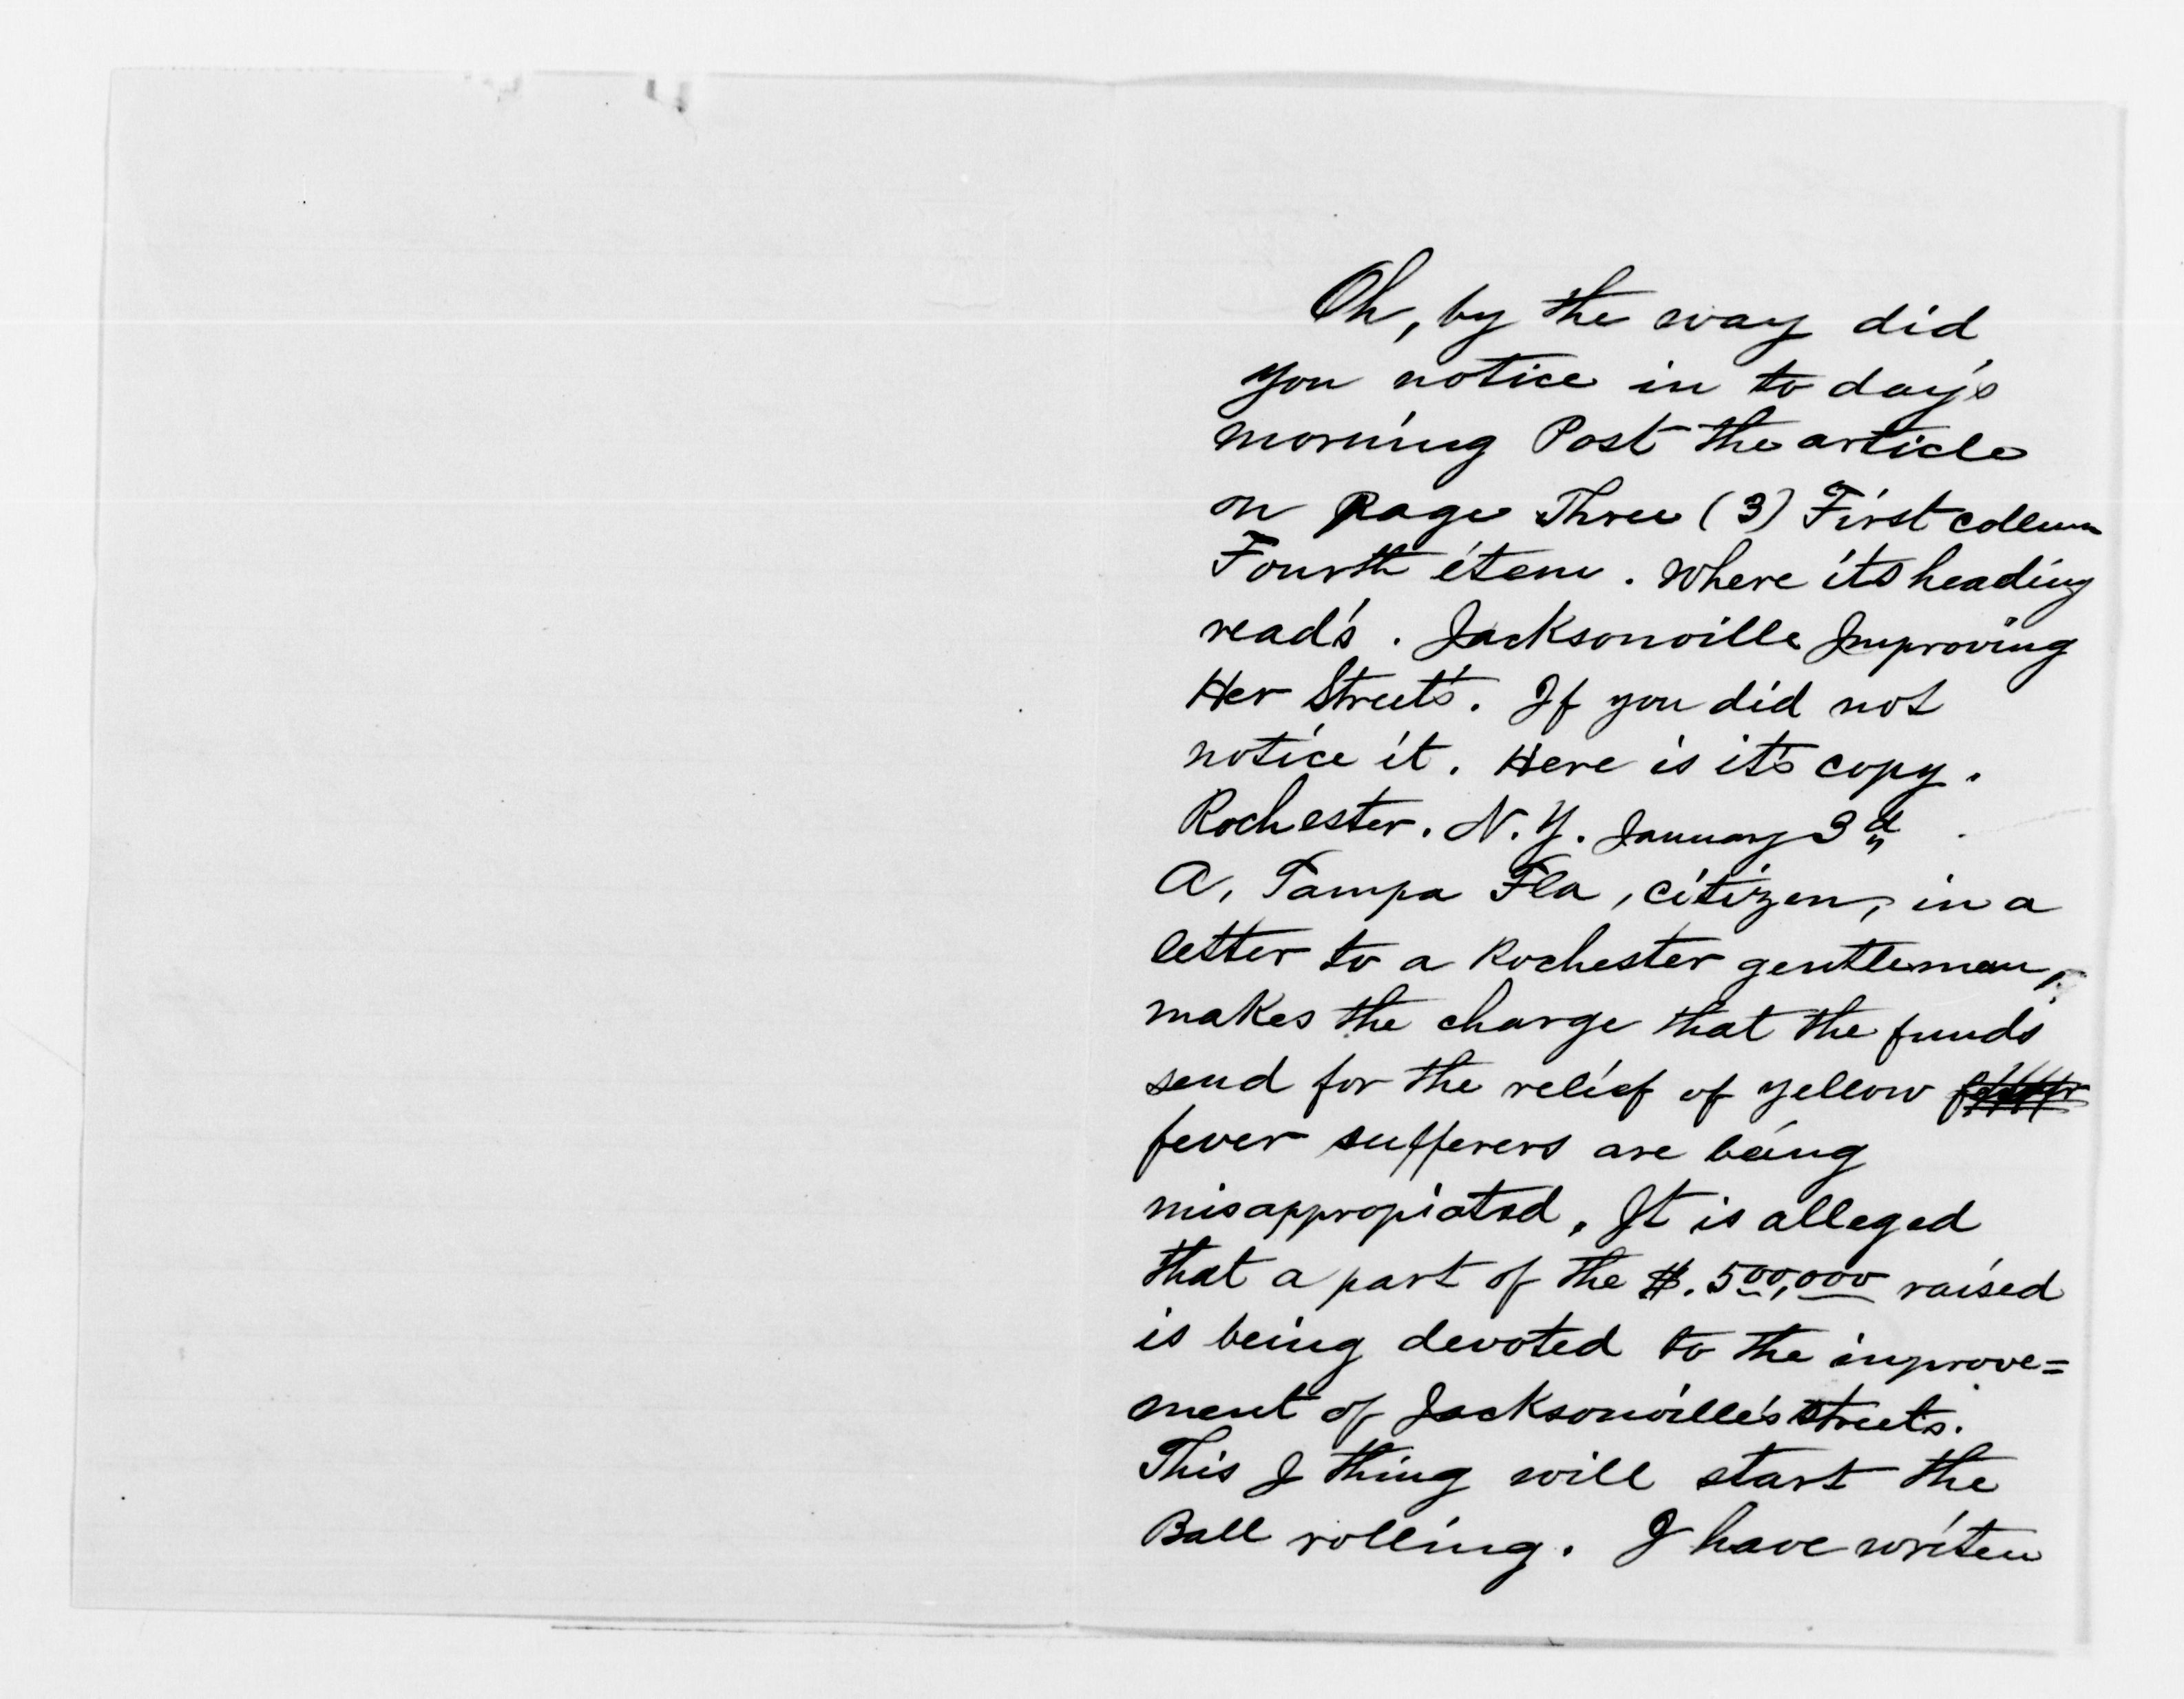 Oh, by the way did
you notice in to day's
morning Post the article
on Page Three (3) First collum
Fourth item. Where its heading
read's. Jacksonville Improving
Her Streets. If you did not
notice it. Here is it's copy.
Rochester. N. Y. January 3d
A, Tampa Fla, citizen, in a
letter to a Rochester gentleman,
makes the charge that the funds
send for the relief of yellow
fever sufferers are being
misappropiated. It is alleged
that a part of the $. 500,000 raised
is being devoted to the improve=
ment of Jacksonville's streets.
This I thing will start the
Ball rolling. I have writen